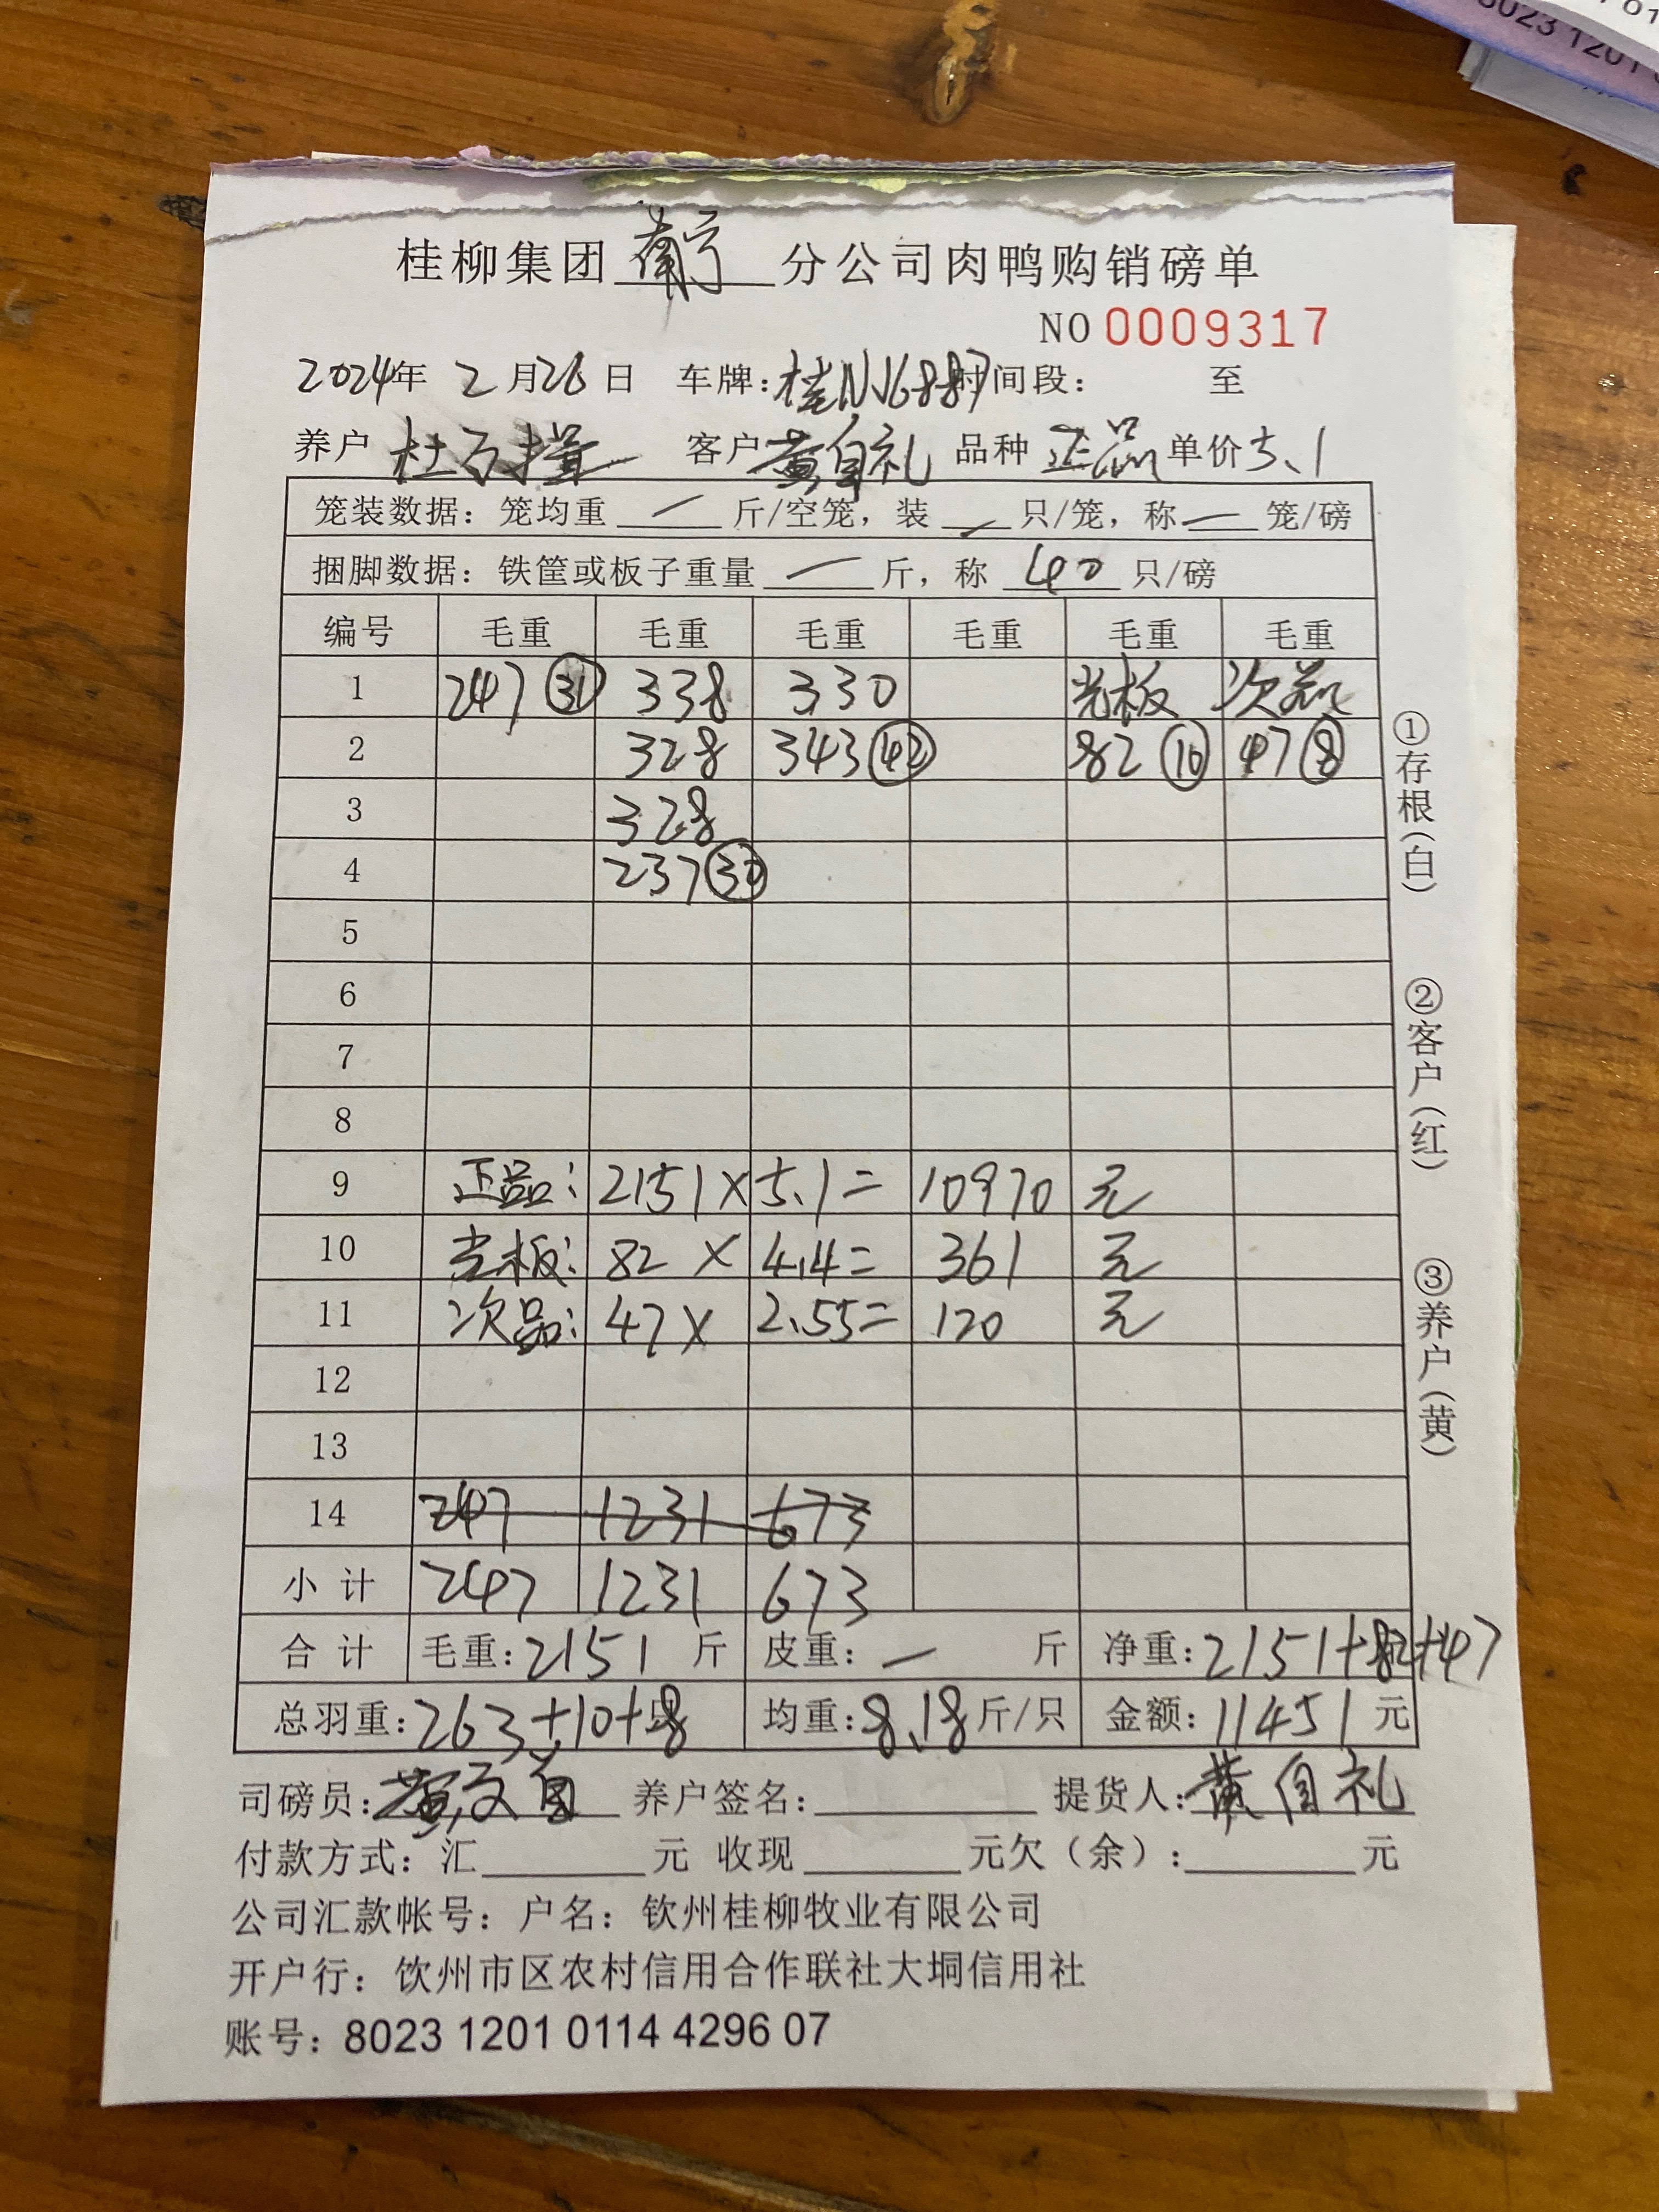 桂柳集团 南宁 分公司肉鸭购销磅单
NO 0009317
2024年 2月26日 车牌：桂NJ6887 时间段： 至
养户 客户 黄自礼 品种 正品 单价 5.1
笼装数据：笼均重 — 斤/空笼，装 — 只/笼，称 — 笼/磅
捆脚数据：铁筐或板子重量 — 斤，称 40 只/磅
编号 毛重 毛重 毛重 毛重 毛重 毛重
1 247 ㉛ 338 330 光板 次品
2 328 343 ㊷ 82 ⑩ 47 ⑧
3 328
4 237 ㉚
5
6
7
8
9 正品： 2151 × 5.1 = 10970 元
10 光板： 82 × 4.4 = 361 元
11 次品： 47 × 2.55 = 120 元
12
13
14 247 1231 673
小计 247 1231 673
合计 毛重：2151 斤 皮重：— 斤 净重：2151+82+47
总羽重：263+10+8 均重：8.18 斤/只 金额：11451 元
司磅员： 养户签名： 提货人：黄自礼
付款方式：汇 元 收现 元欠（余）： 元
公司汇款帐号：户名：钦州桂柳牧业有限公司
开户行：钦州市区农村信用合作联社大垌信用社
账号：8023 1201 0114 4296 07
①存根（白）
②客户（红）
③养户（黄）
8023 1201